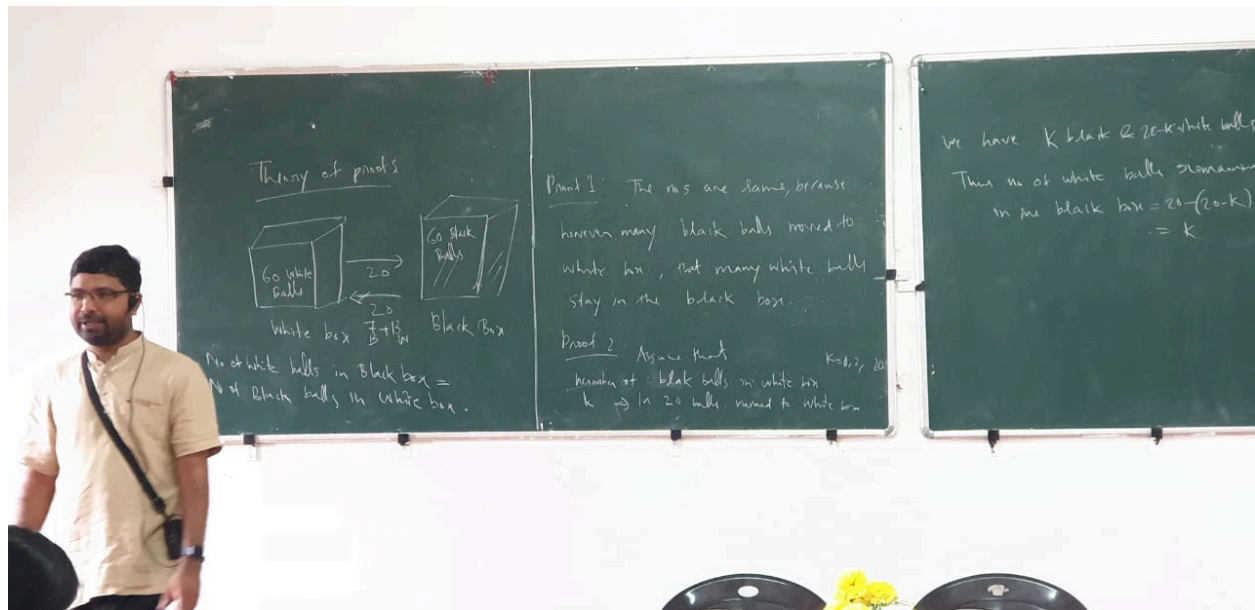 Theory of proofs
60 White
Balls
20
20
7 + 13
B W
White box
60 Black
Balls
Black Box
No of white balls in Black box =
No of Black balls in White box.
Proof 1: The nos are same, because
however many black balls moved to
white box, that many white balls
stay in the black box.
Proof 2 Assume that
number of blak balls in white box
k ⇒ In 20 balls moved to white box
we have K black & 20-K white balls
Thus no of white balls
in the black box = 20-(20-K)
= K